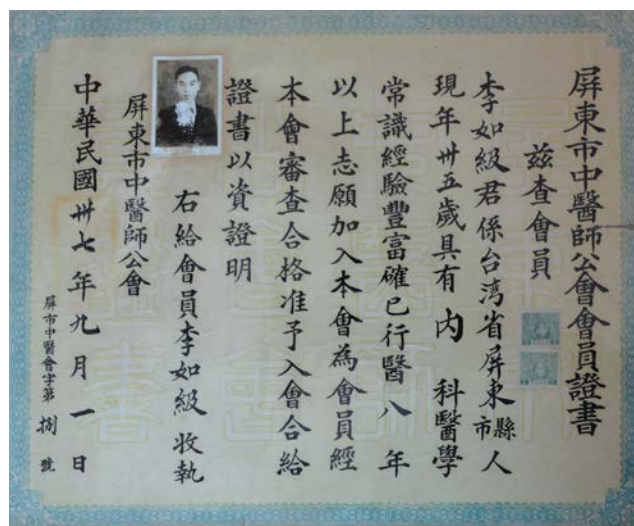 屏東市中醫師公會會員證書
茲查會員
李如級君係台湾省屏東市縣人
現年卅五歲具有內科醫學
常識經驗豐富確已行醫八年
以上志願加入本會為會員經
本會審查合格准予入會合給
證書以資證明
右給會員李如級收執
屏東市中醫師公會
中華民國卅七年九月一日
屏市中醫會字第捌號